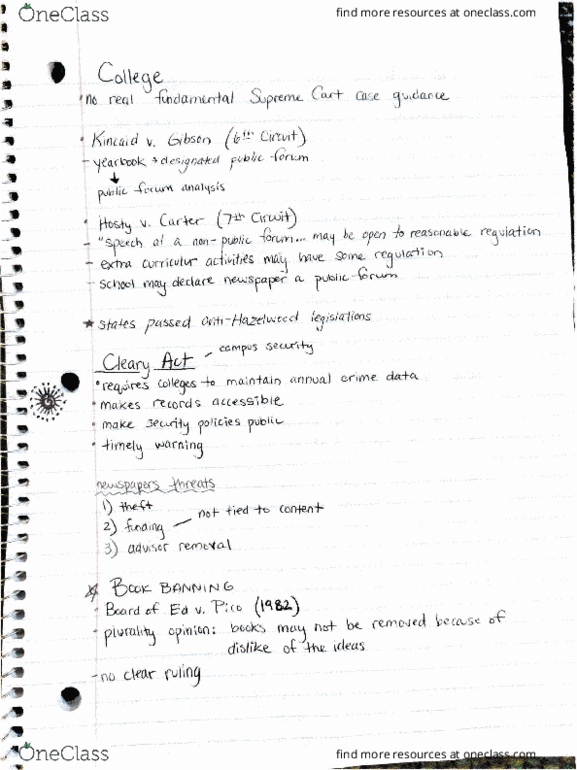 OneClass
find more resources at oneclass.com
College
• no real fundamental Supreme Cart case guidance
• Kincaid v. Gibson (6th Circuit)
- yearbook → designated public forum
↓
public forum analysis
• Hosty v. Carter (7th Circuit)
- "speech at a non-public forum... may be open to reasonable regulation
- extra curricular activities may have some regulation
- school may declare newspaper a public forum
★ states passed anti-Hazelwood legislations
Cleary Act - campus security
• requires colleges to maintain annual crime data
• makes records accessible
• make security policies public
• timely warning
newspapers threats
1) theft
2) funding - not tied to content
3) advisor removal
☆ BOOK BANNING
• Board of Ed v. Pico (1982)
• plurality opinion: books may not be removed because of
dislike of the ideas
- no clear ruling
OneClass
find more resources at oneclass.com